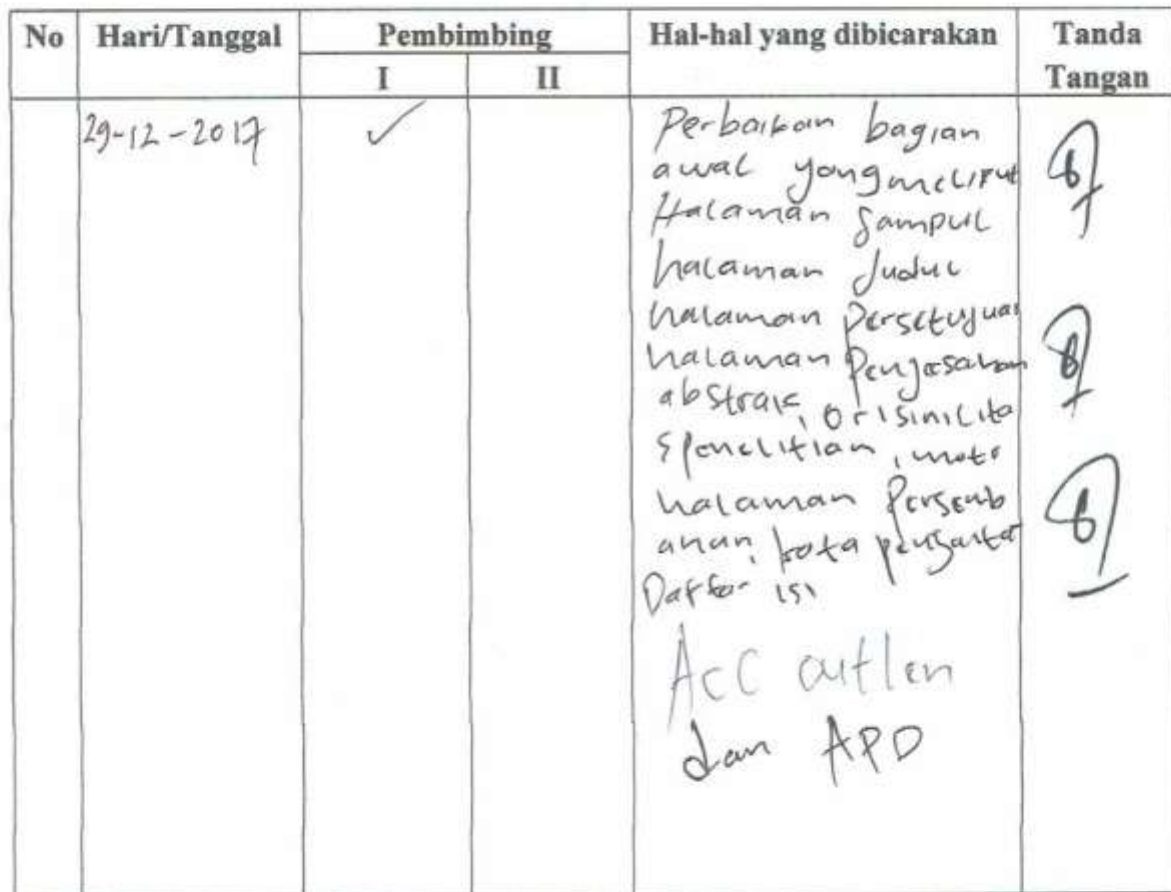 No Hari/Tanggal Pembimbing Hal-hal yang dibicarakan Tanda Tangan
I II
29-12-2017 ✓ Perbaikan bagian
awal yang meliput
Halaman Sampul
halaman Judul
halaman Persetujuan
halaman Pengesahan
abstrak, orisinilita
s penelitian, moto
halaman Persemb
ahan, kata pengantar
Daftar isi
Acc outlen
dan APD